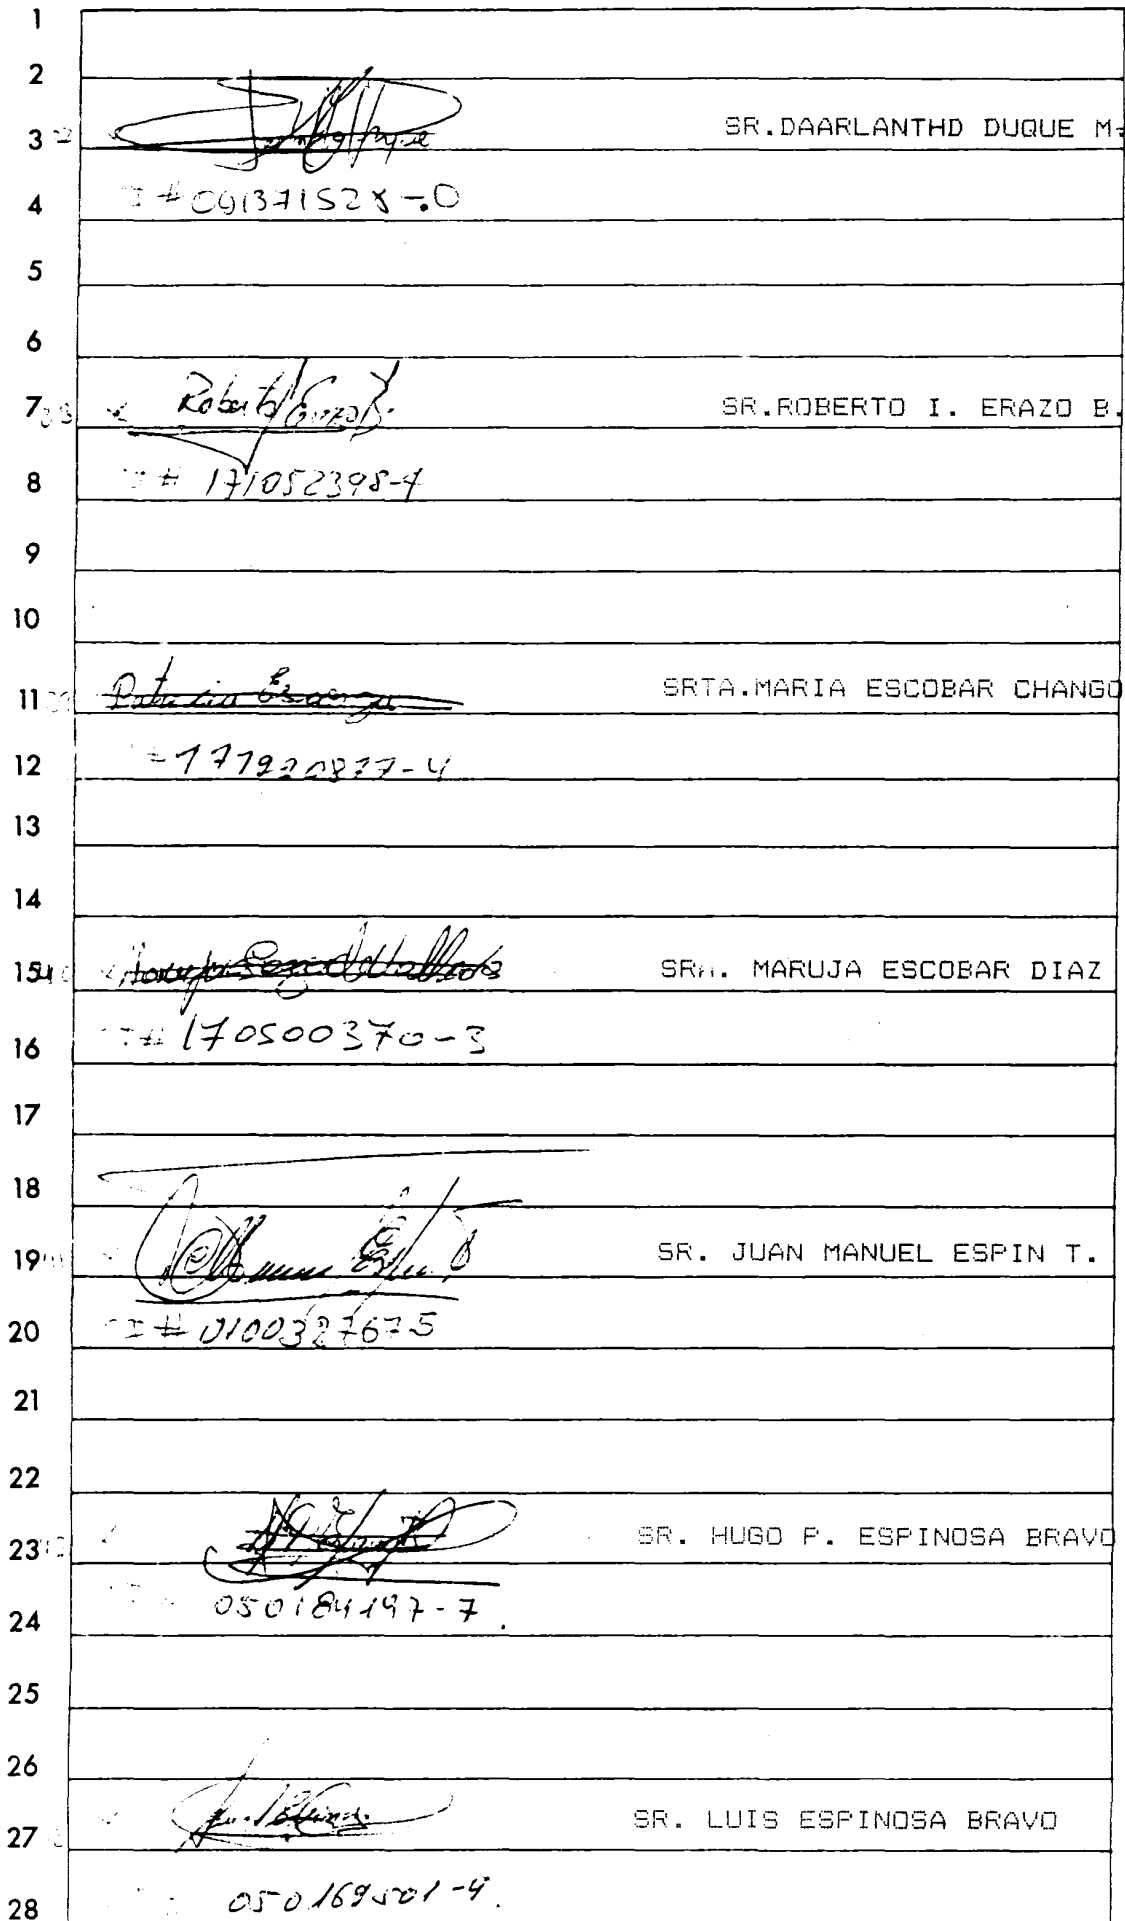 1
2
3 SR.DAARLANTHD DUQUE M.
4 I # 091371528-0
5
6
7 Roberto Erazo B. SR.ROBERTO I. ERAZO B.
8 I # 171052398-4
9
10
11 Patricia SRTA.MARIA ESCOBAR CHANGO
12 # 171920877-4
13
14
15 SRA. MARUJA ESCOBAR DIAZ
16 I # 170500370-3
17
18
19 SR. JUAN MANUEL ESPIN T.
20 I # 0100327675
21
22
23 SR. HUGO P. ESPINOSA BRAVO
24 050184197-7
25
26
27 SR. LUIS ESPINOSA BRAVO
28 050169501-4